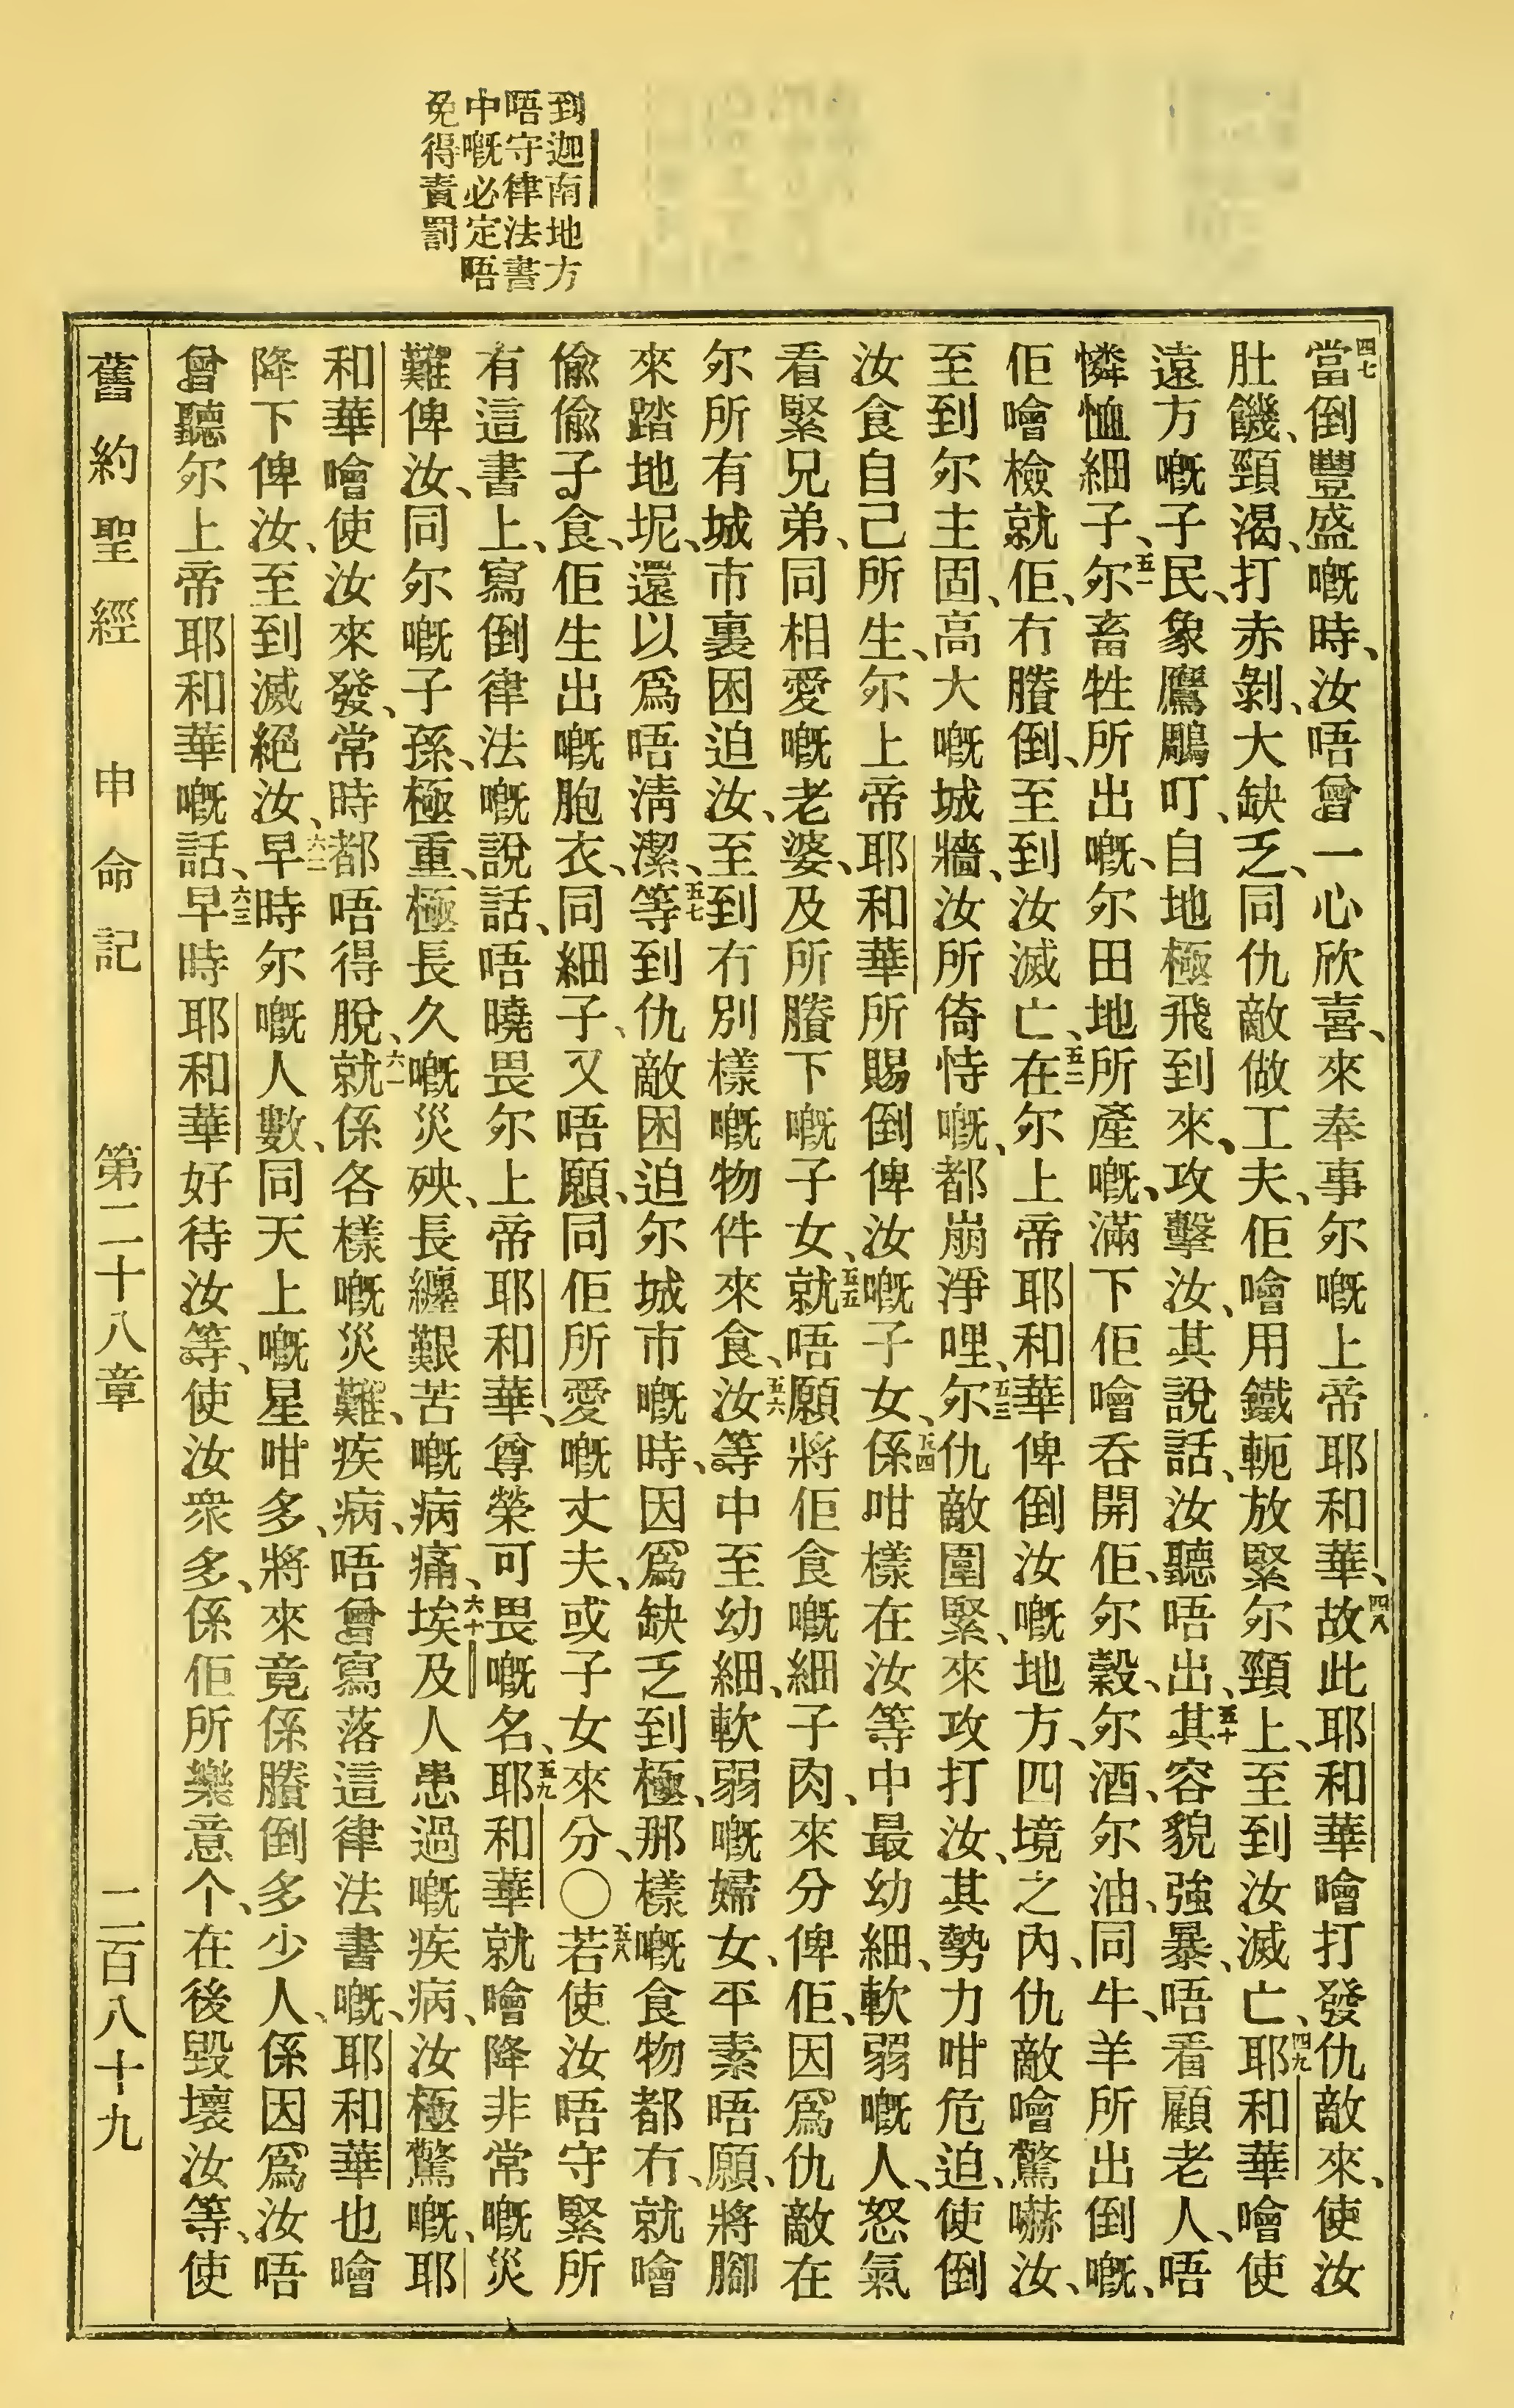 到迦南地方
唔守律法書
中嘅必定唔
免得責罰
四七當倒豐盛嘅時、汝唔曾一心欣喜、來奉事尔嘅上帝耶和華、四八故此耶和華噲打發仇敵來、使汝
肚饑、頸渴、打赤剝、大缺乏、同仇敵做工夫、佢噲用鐵軛放緊尔頸上、至到汝滅亡、四九耶和華噲使
遠方嘅子民、象鷹鵰叮、自地極飛到來、攻擊汝、其說話、汝聽唔出、五十其容貌強暴、唔看顧老人、唔
憐恤細子、五一尔畜牲所出嘅、尔田地所產嘅、滿下佢噲吞開佢、尔穀、尔酒、尔油、同牛、羊所出倒嘅、
佢噲檢就佢、冇賸倒、至到汝滅亡、五二在尔上帝耶和華俾倒汝嘅地方、四境之內、仇敵噲驚嚇汝、
至到尔主固、高大嘅城牆、汝所倚恃嘅、都崩淨哩、五三尔仇敵圍緊、來攻打汝、其勢力咁危迫、使倒
汝食自己所生、尔上帝耶和華所賜倒俾汝嘅子女、五四係咁樣在汝等中最幼細、軟弱嘅人、怒氣
看緊兄弟、同相愛嘅老婆、及所賸下嘅子女、五五就唔願將佢食嘅細子肉、來分俾佢、因爲仇敵在
尔所有城市裏困迫汝、至到冇別樣嘅物件來食、五六汝等中至幼細、軟弱嘅婦女、平素唔願、將腳
來踏地坭、還以爲唔清潔、五七等到仇敵困迫尔城市嘅時、因爲缺乏到極、那樣嘅食物都冇、就噲
偸偸子食、佢生出嘅胞衣、同細子、又唔願、同佢所愛嘅丈夫、或子女來分、〇五八若使汝唔守緊所
有這書上、寫倒律法嘅說話、唔曉畏尔上帝耶和華、尊榮可畏嘅名、五九耶和華就噲降非常嘅災
難俾汝、同尔嘅子孫、極重、極長久嘅災殃、長纏艱苦嘅病痛、六十埃及人患過嘅疾病、汝極驚嘅、耶
和華噲使汝來發、常時都唔得脫、六一就係各樣嘅災難、疾病、唔曾寫落這律法書嘅、耶和華也噲
降下俾汝、至到滅絕汝、六二早時尔嘅人數、同天上嘅星咁多、將來竟係賸倒多少人、係因爲汝唔
曾聽尔上帝耶和華嘅話、六三早時耶和華好待汝等、使汝衆多、係佢所樂意个、在後毀壞汝等、使
舊約聖經 申命記 第二十八章 二百八十九